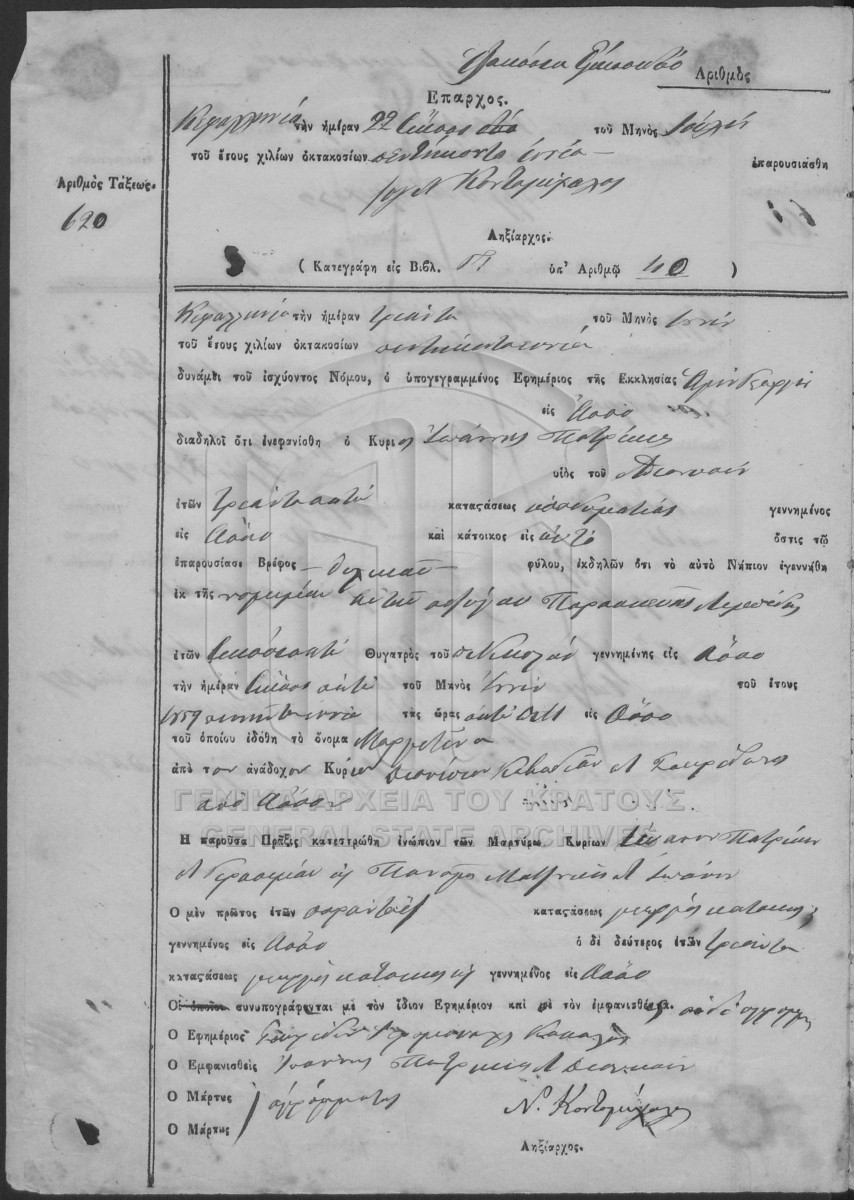 Διακόσια Είκοσι δύο Αριθμὸς
Έπαρχος.
Κεφαλληνία τὴν ἡμέραν 22 Είκοσι δύο τοῦ Μηνὸς Ιουλίου
τοῦ ἔτους χιλίων ὀκτακοσίων πεντήκοντα ἐννέα ἐπαρουσιάσθη
Κοντομίχαλος
Ἀριθμὸς Τάξεως.
620
Ληξίαρχος.
( Κατεγράφη εἰς Βιβλ. ὑπ' Ἀριθμῷ 40 )
Κεφαλληνία τὴν ἡμέραν τριάντα τοῦ Μηνὸς Ιουνίου
τοῦ ἔτους χιλίων ὀκτακοσίων πεντήκοντα εννιά
δυνάμει τοῦ ἰσχύοντος Νόμου, ὁ ὑπογεγραμμένος Ἐφημέριος τῆς Ἐκκλησίας Αγίου Γεωργίου
εἰς Ἀσσο
διαδηλοῖ ὅτι ἐνεφανίσθη ὁ Κύριος Ἰωάννης Πετρίκης
υἱὸς τοῦ Διονυσίου
ἐτῶν τριάντα οκτώ καταςάσεως υποδυματάς γεννημένος
εἰς Ἀσσο καὶ κάτοικος εἰς αυτό ὅστις τῷ
ἐπαρουσίασε Βρέφος θηλυκού φύλου, ἐκδηλῶν ὅτι τὸ αὐτὸ Νήπιον ἐγεννήθη
ἐκ τῆς νομίμου αυτού συζύγου Παρασκευής
ἐτῶν είκοσι οκτώ Θυγατρὸς τοῦ Νικολάου γεννημένης εἰς Ἀσσο
τὴν ἡμέραν είκοσι οκτώ τοῦ Μηνὸς Ιουνίου τοῦ ἔτους
1859 πενήντα εννιά τὰς ὥρας οκτώ εἰς Ἀσσο
τοῦ ὁποίου ἐδόθη τὸ ὄνομα Μαργετίνα
ἀπὸ τον ἀνάδοχον Κύριον Διονύσιον
από Ἀσσον
ΓΕΝΙΚΑ ΑΡΧΕΙΑ ΤΟΥ ΚΡΑΤΟΥΣ
GENERAL STATE ARCHIVES
Ἡ παροῦσα Πρᾶξις κατεστρώθη ἐνώπιον τῶν Μαρτύρω Κυρίων Πετρίκη
Γερασίμου Παναγή Ιωάννου
Ὁ μὲν πρῶτος ἐτῶν σαράντα καταςάσεως γεωργός κάτοικος
γεννημένος εἰς Ἀσσο ὁ δὲ δεύτερος ἐτῶν τριάντα
καταςάσεως γεωργός κάτοικος γεννημένος εἰς Ἀσσο
Οἱ ὁποῖοι συνυπογράφονται μὲ τὸν ἴδιον Ἐφημέριον καὶ μὲ τὸν ἐμφανισθέντα.
Ὁ Ἐφημέριος Ιερομόναχος
Ὁ Ἐμφανισθεὶς Ιωάννης Πετρίκης Διονυσίου
Ὁ Μάρτυς αγράμματος
Ὁ Μάρτυς
Ν. Κοντομίχαλος
Ληξίαρχος.